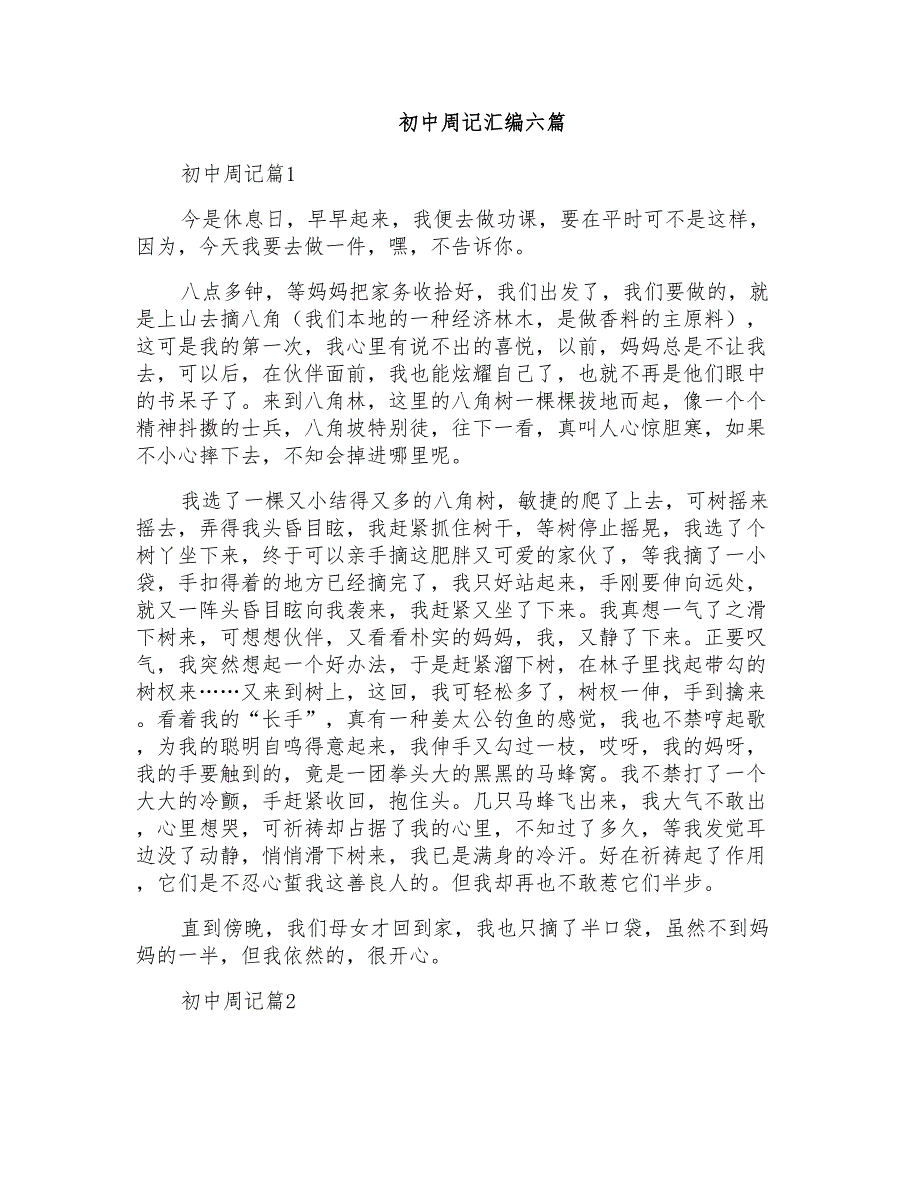 初中周记汇编六篇
初中周记篇1
今是休息日，早早起来，我便去做功课，要在平时可不是这样，
因为，今天我要去做一件，嘿，不告诉你。
八点多钟，等妈妈把家务收拾好，我们出发了，我们要做的，就
是上山去摘八角（我们本地的一种经济林木，是做香料的主原料），
这可是我的第一次，我心里有说不出的喜悦，以前，妈妈总是不让我
去，可以后，在伙伴面前，我也能炫耀自己了，也就不再是他们眼中
的书呆子了。来到八角林，这里的八角树一棵棵拔地而起，像一个个
精神抖擞的士兵，八角坡特别徒，往下一看，真叫人心惊胆寒，如果
不小心摔下去，不知会掉进哪里呢。
我选了一棵又小结得又多的八角树，敏捷的爬了上去，可树摇来
摇去，弄得我头昏目眩，我赶紧抓住树干，等树停止摇晃，我选了个
树丫坐下来，终于可以亲手摘这肥胖又可爱的家伙了，等我摘了一小
袋，手扣得着的地方已经摘完了，我只好站起来，手刚要伸向远处，
就又一阵头昏目眩向我袭来，我赶紧又坐了下来。我真想一气了之滑
下树来，可想想伙伴，又看看朴实的妈妈，我，又静了下来。正要叹
气，我突然想起一个好办法，于是赶紧溜下树，在林子里找起带勾的
树杈来……又来到树上，这回，我可轻松多了，树杈一伸，手到擒来
。看着我的“长手”，真有一种姜太公钓鱼的感觉，我也不禁哼起歌
，为我的聪明自鸣得意起来，我伸手又勾过一枝，哎呀，我的妈呀，
我的手要触到的，竟是一团拳头大的黑黑的马蜂窝。我不禁打了一个
大大的冷颤，手赶紧收回，抱住头。几只马蜂飞出来，我大气不敢出
，心里想哭，可祈祷却占据了我的心里，不知过了多久，等我发觉耳
边没了动静，悄悄滑下树来，我已是满身的冷汗。好在祈祷起了作用
，它们是不忍心蜇我这善良人的。但我却再也不敢惹它们半步。
直到傍晚，我们母女才回到家，我也只摘了半口袋，虽然不到妈
妈的一半，但我依然的，很开心。
初中周记篇2